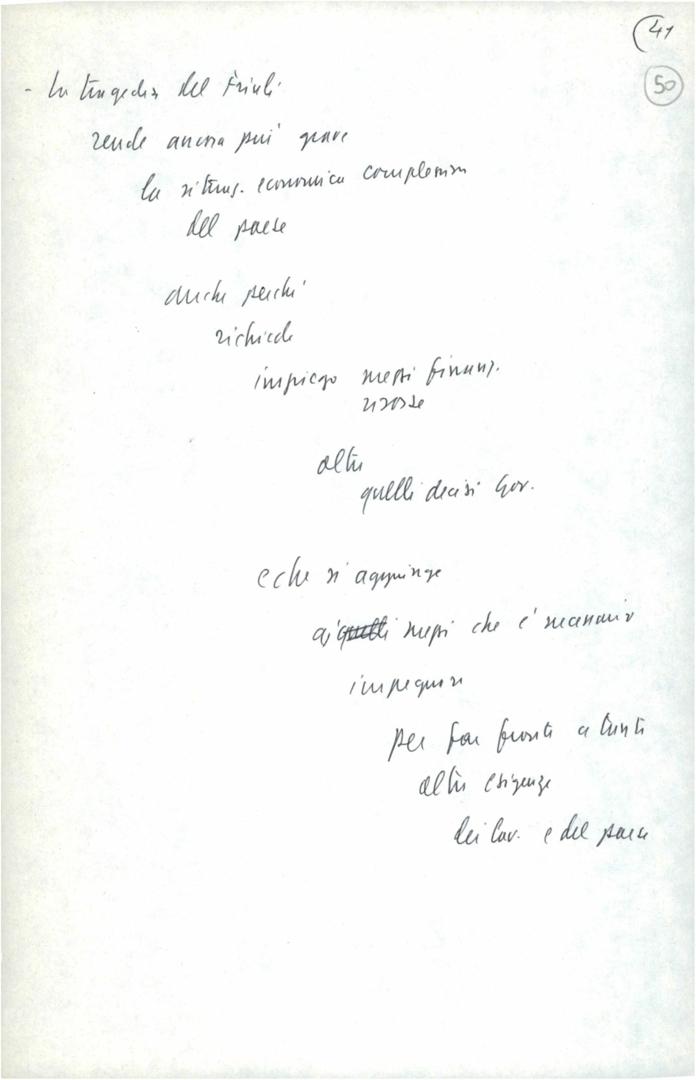 41
50
- La tragedia del Friuli
rende ancora più grave
la situaz. economica complessiva
del paese
anche perché
richiede
impiego mezzi finanz.
risorse
oltre
quelli decisi Gov.
e che si aggiunge
ai quelli mezzi che è necessario
impegnare
per far fronte a tante
altre esigenze
dei lav. e del paese